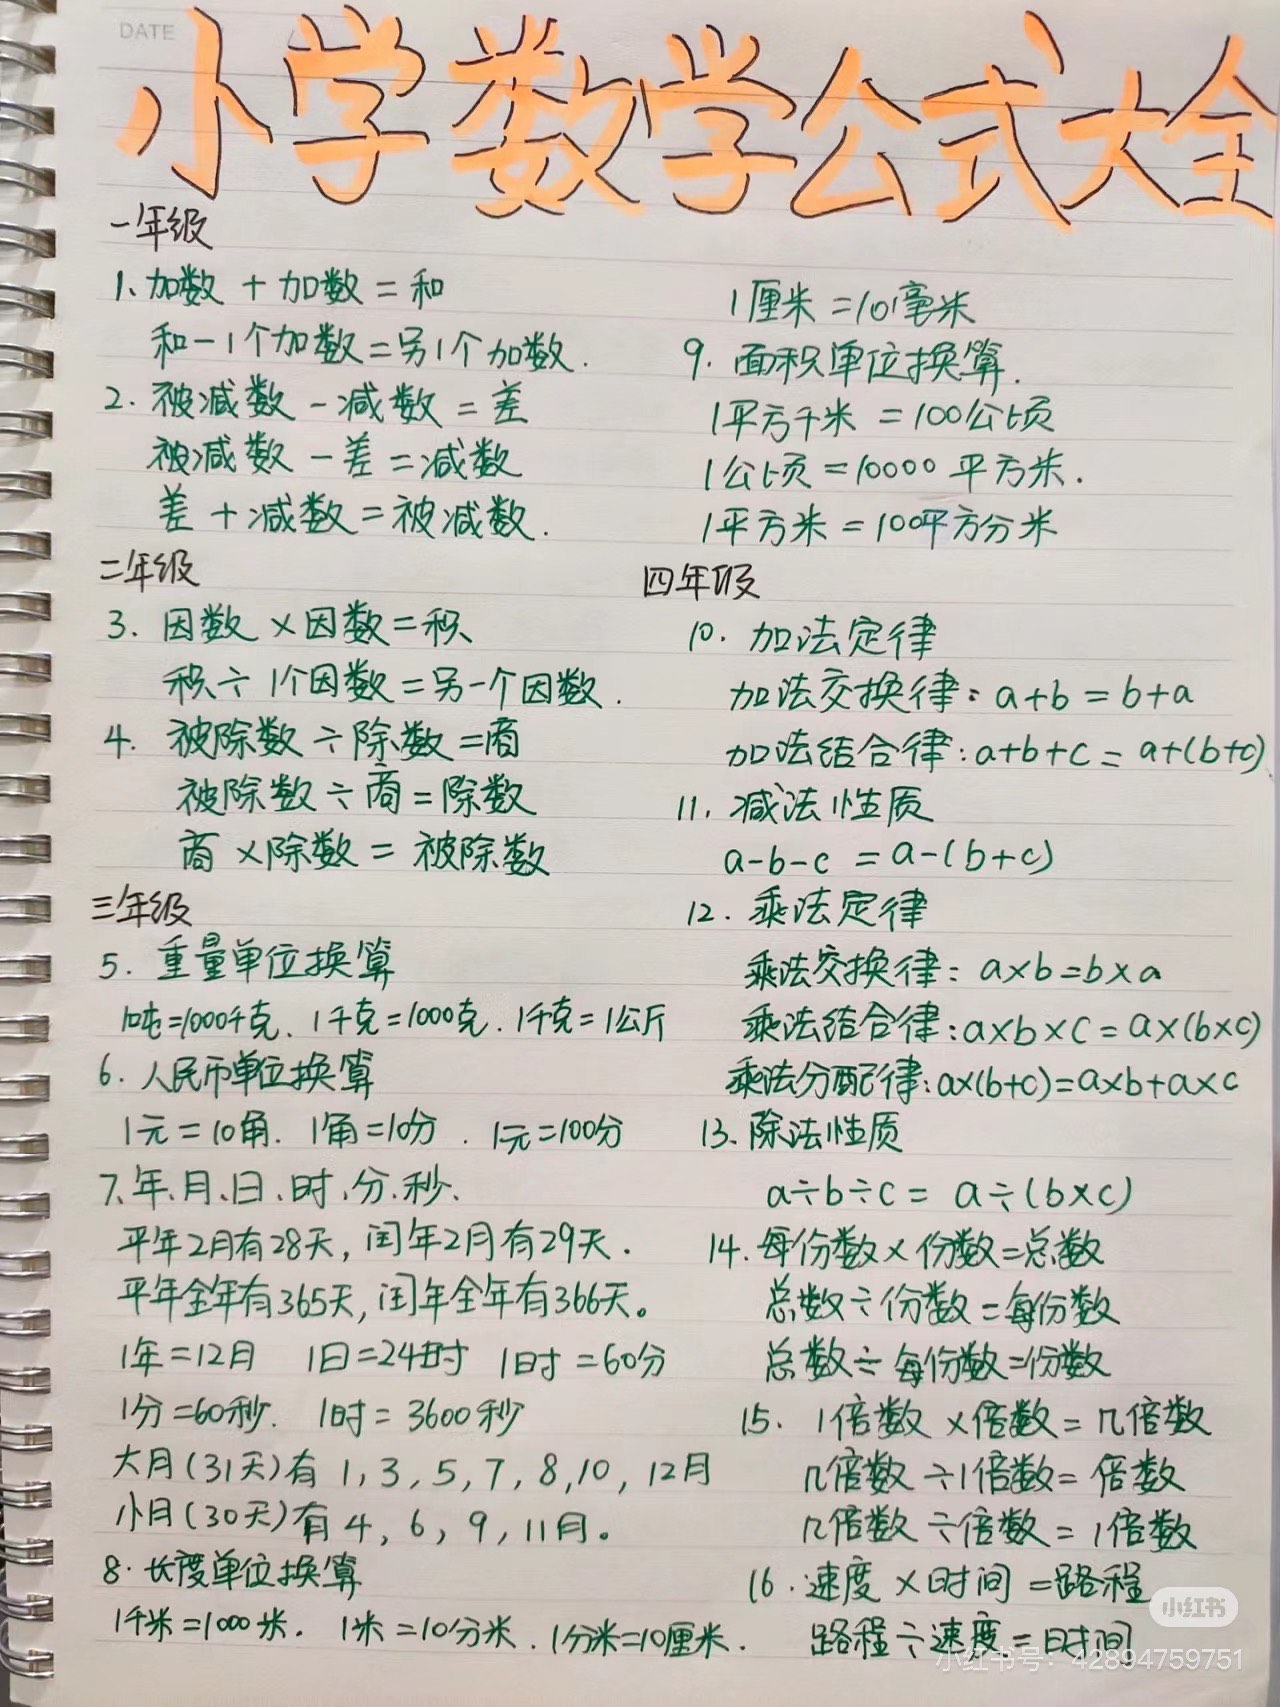 DATE
小学数学公式大全
一年级
1、加数+加数=和
和-1个加数=另1个加数.
2.被减数-减数=差
被减数-差=减数
差+减数=被减数.
二年级
3.因数×因数=积
积÷1个因数=另一个因数.
4.被除数÷除数=商
被除数÷商=除数
商×除数=被除数
三年级
5.重量单位换算
1吨=1000千克.1千克=1000克.1千克=1公斤
6.人民币单位换算
1元=10角.1角=10分.1元=100分
7、年、月、日、时、分、秒、
平年2月有28天,闰年2月有29天.
平年全年有365天,闰年全年有366天。
1年=12月 1日=24时 1时=60分
1分=60秒.1时=3600秒
大月(31天)有1,3,5,7,8,10,12月
小月(30天)有4,6,9,11月。
8.长度单位换算
1千米=1000米.1米=10分米.1分米=10厘米.
1厘米=10毫米
9.面积单位换算.
1平方千米=100公顷
1公顷=10000平方米.
1平方米=100平方分米
四年级
10.加法定律
加法交换律:a+b=b+a
加法结合律:a+b+c=a+(b+c)
11.减法性质
a-b-c=a-(b+c)
12.乘法定律
乘法交换律:a×b=b×a
乘法结合律:a×b×c=a×(b×c)
乘法分配律:a×(b+c)=a×b+a×c
13.除法性质
a÷b÷c=a÷(b×c)
14.每份数×份数=总数
总数÷份数=每份数
总数÷每份数=份数
15.1倍数×倍数=几倍数
几倍数÷1倍数=倍数
几倍数÷倍数=1倍数
16.速度×时间=路程
路程÷速度=时间
小红书
小红书号:42894759751